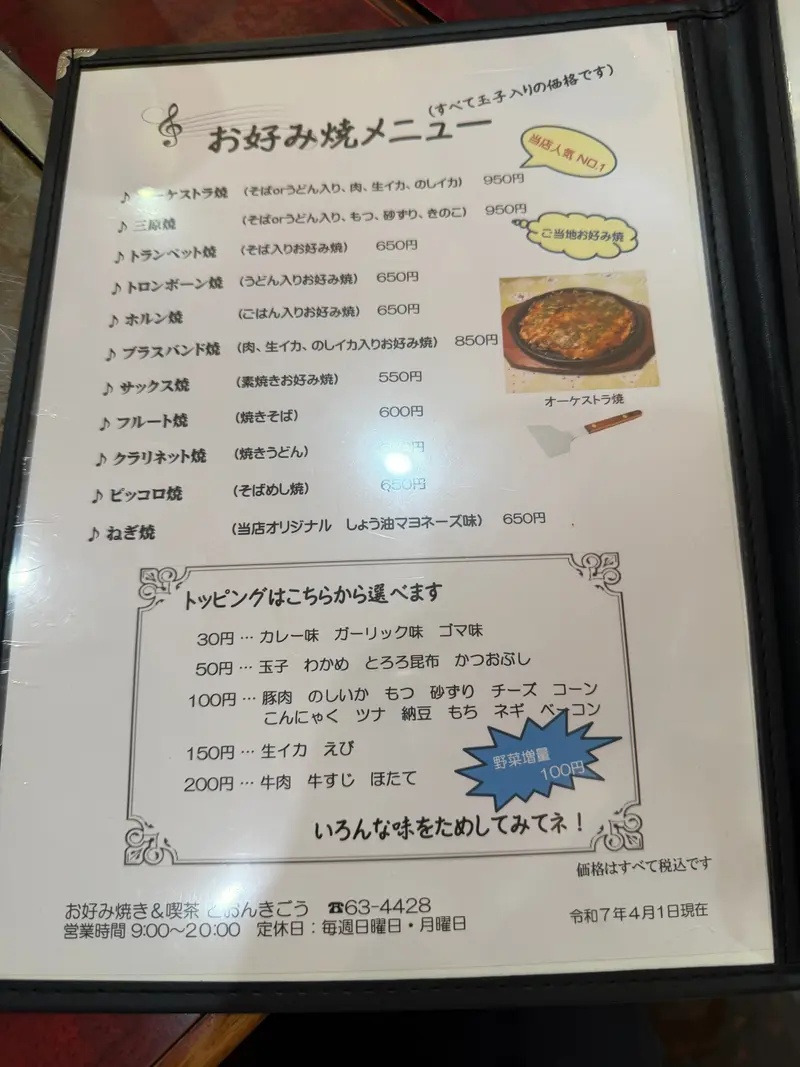 お好み焼メニュー (すべて玉子入りの価格です)
当店人気 NO.1
♪ ーケストラ焼 (そばorうどん入り、肉、生イカ、のしイカ) 950円
♪ 三原焼 (そばorうどん入り、もつ、砂ずり、きのこ) 950円
ご当地お好み焼
♪ トランペット焼 (そば入りお好み焼) 650円
♪ トロンボーン焼 (うどん入りお好み焼) 650円
♪ ホルン焼 (ごはん入りお好み焼) 650円
♪ ブラスバンド焼 (肉、生イカ、のしイカ入りお好み焼) 850円
♪ サックス焼 (素焼きお好み焼) 550円
オーケストラ焼
♪ フルート焼 (焼きそば) 600円
♪ クラリネット焼 (焼きうどん) 円
♪ ピッコロ焼 (そばめし焼) 650円
♪ ねぎ焼 (当店オリジナル しょう油マヨネーズ味) 650円
トッピングはこちらから選べます
30円 … カレー味 ガーリック味 ゴマ味
50円 … 玉子 わかめ とろろ昆布 かつおぶし
100円 … 豚肉 のしいか もつ 砂ずり チーズ コーン
こんにゃく ツナ 納豆 もち ネギ ベーコン
150円 … 生イカ えび
200円 … 牛肉 牛すじ ほたて
野菜増量
100円
いろんな味をためしてみてネ!
価格はすべて税込です
お好み焼き&喫茶 とおんきごう ☎63-4428
営業時間 9:00~20:00 定休日:毎週日曜日・月曜日
令和7年4月1日現在